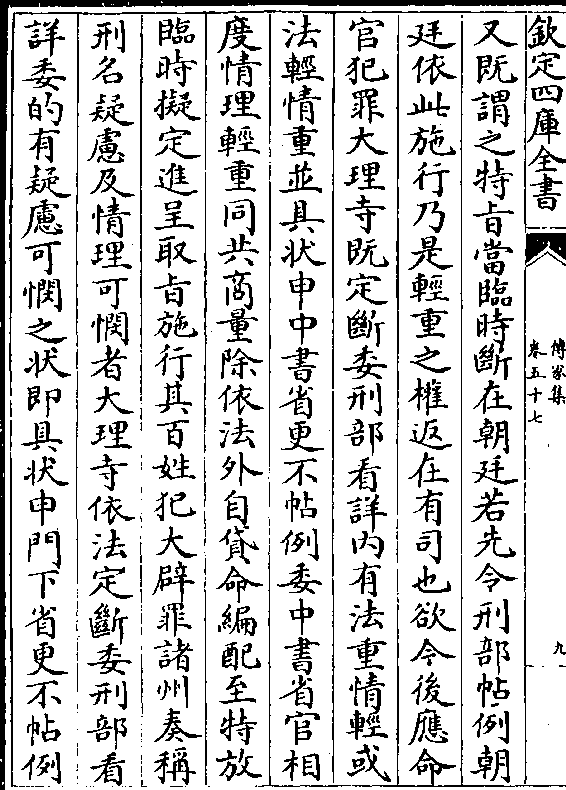 欽定四庫全書
傳家集
卷五十七
九
又既謂之特旨當臨時斷在朝廷若先令刑部帖例朝
廷依此施行乃是輕重之權返在有司也欲今後應命
官犯罪大理寺既定斷委刑部看詳内有法重情輕或
法輕情重並具状申中書省更不帖例委中書省官相
度情理輕重同共商量除依法外自貸命編配至特放
臨時擬定進呈取旨施行其百姓犯大辟罪諸州奏稱
刑名疑慮及情理可憫者大理寺依法定斷委刑部看
詳委的有疑慮可憫之状即具状申門下省更不帖例